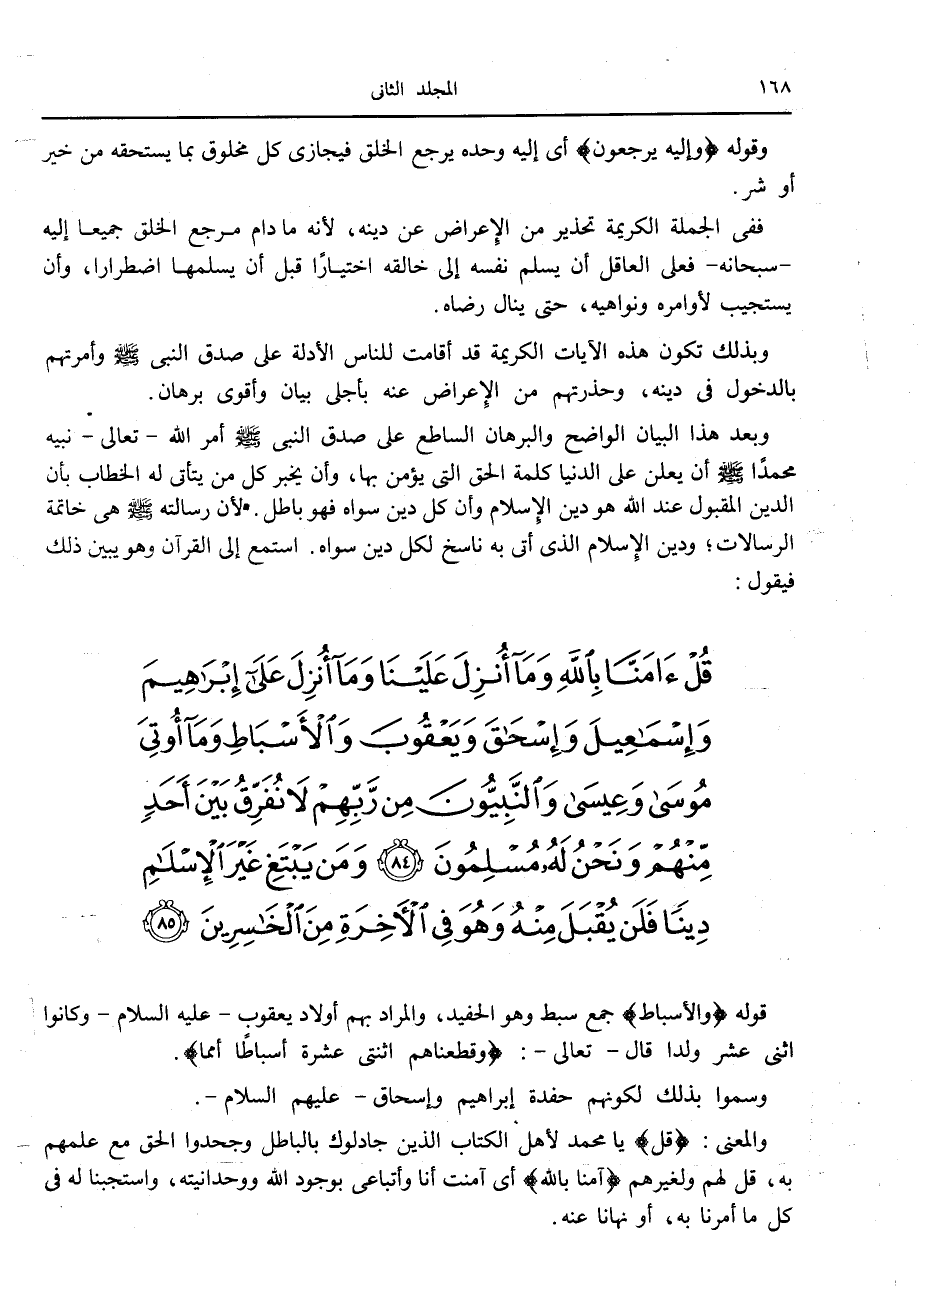 ١٦٨
المجلد الثانى
وقوله ﴿وإليه يرجعون﴾ أى إليه وحده يرجع الخلق فيجازى كل مخلوق بما يستحقه من خير
أو شر.
ففى الجملة الكريمة تحذير من الإعراض عن دينه، لأنه ما دام مرجع الخلق جميعا إليه
-سبحانه- فعلى العاقل أن يسلم نفسه إلى خالقه اختيارًا قبل أن يسلمها اضطرارا، وأن
يستجيب لأوامره ونواهيه، حتى ينال رضاه.
وبذلك تكون هذه الآيات الكريمة قد أقامت للناس الأدلة على صدق النبى ﷺ وأمرتهم
بالدخول فى دينه، وحذرتهم من الإعراض عنه بأجلى بيان وأقوى برهان.
وبعد هذا البيان الواضح والبرهان الساطع على صدق النبى ﷺ أمر الله - تعالى - نبيه
محمدًا ﷺ أن يعلن على الدنيا كلمة الحق التى يؤمن بها، وأن يخبر كل من يتأتى له الخطاب بأن
الدين المقبول عند الله هو دين الإسلام وأن كل دين سواه فهو باطل. لأن رسالته ﷺ هى خاتمة
الرسالات؛ ودين الإسلام الذى أتى به ناسخ لكل دين سواه. استمع إلى القرآن وهو يبين ذلك
فيقول :
قُلْ ءَامَنَّا بِٱللَّهِ وَمَآ أُنزِلَ عَلَيْنَا وَمَآ أُنزِلَ عَلَىٰٓ إِبْرَٰهِيمَ
وَإِسْمَٰعِيلَ وَإِسْحَٰقَ وَيَعْقُوبَ وَٱلْأَسْبَاطِ وَمَآ أُوتِىَ
مُوسَىٰ وَعِيسَىٰ وَٱلنَّبِيُّونَ مِن رَّبِّهِمْ لَا نُفَرِّقُ بَيْنَ أَحَدٍ
مِّنْهُمْ وَنَحْنُ لَهُۥ مُسْلِمُونَ ٨٤ وَمَن يَبْتَغِ غَيْرَ ٱلْإِسْلَٰمِ
دِينًا فَلَن يُقْبَلَ مِنْهُ وَهُوَ فِى ٱلْأَخِرَةِ مِنَ ٱلْخَٰسِرِينَ ٨٥
قوله ﴿والأسباط﴾ جمع سبط وهو الحفيد، والمراد بهم أولاد يعقوب - عليه السلام - وكانوا
اثنى عشر ولدا قال - تعالى - : ﴿وقطعناهم اثنتى عشرة أسباطًا أمما﴾.
وسموا بذلك لكونهم حفدة إبراهيم وإسحاق - عليهم السلام -.
والمعنى : ﴿قل﴾ يا محمد لأهل الكتاب الذين جادلوك بالباطل وجحدوا الحق مع علمهم
به، قل لهم ولغيرهم ﴿آمنا بالله﴾ أى آمنت أنا وأتباعى بوجود الله ووحدانيته، واستجبنا له فى
كل ما أمرنا به، أو نهانا عنه.